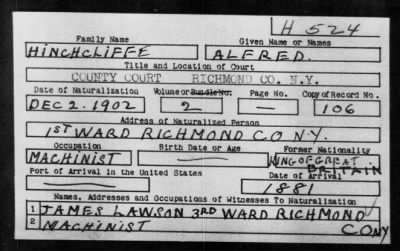 H 524
Family Name Given Name or Names
HINCHCLIFFE ALFRED.
Title and Location of Court
COUNTY COURT RICHMOND CO. N.Y.
Date of Naturalization Volume or Bundle No. Page No. Copy of Record No.
DEC 2-1902 2 — 106
Address of Naturalized Person
1ST WARD RICHMOND CO N.Y.
Occupation Birth Date or Age Former Nationality
MACHINIST — KING OF GREAT BRITAIN
Port of Arrival in the United States Date of Arrival
— 1881
Names, Addresses and Occupations of Witnesses To Naturalization
1 JAMES LAWSON 3RD WARD RICHMOND
2 MACHINIST CO NY